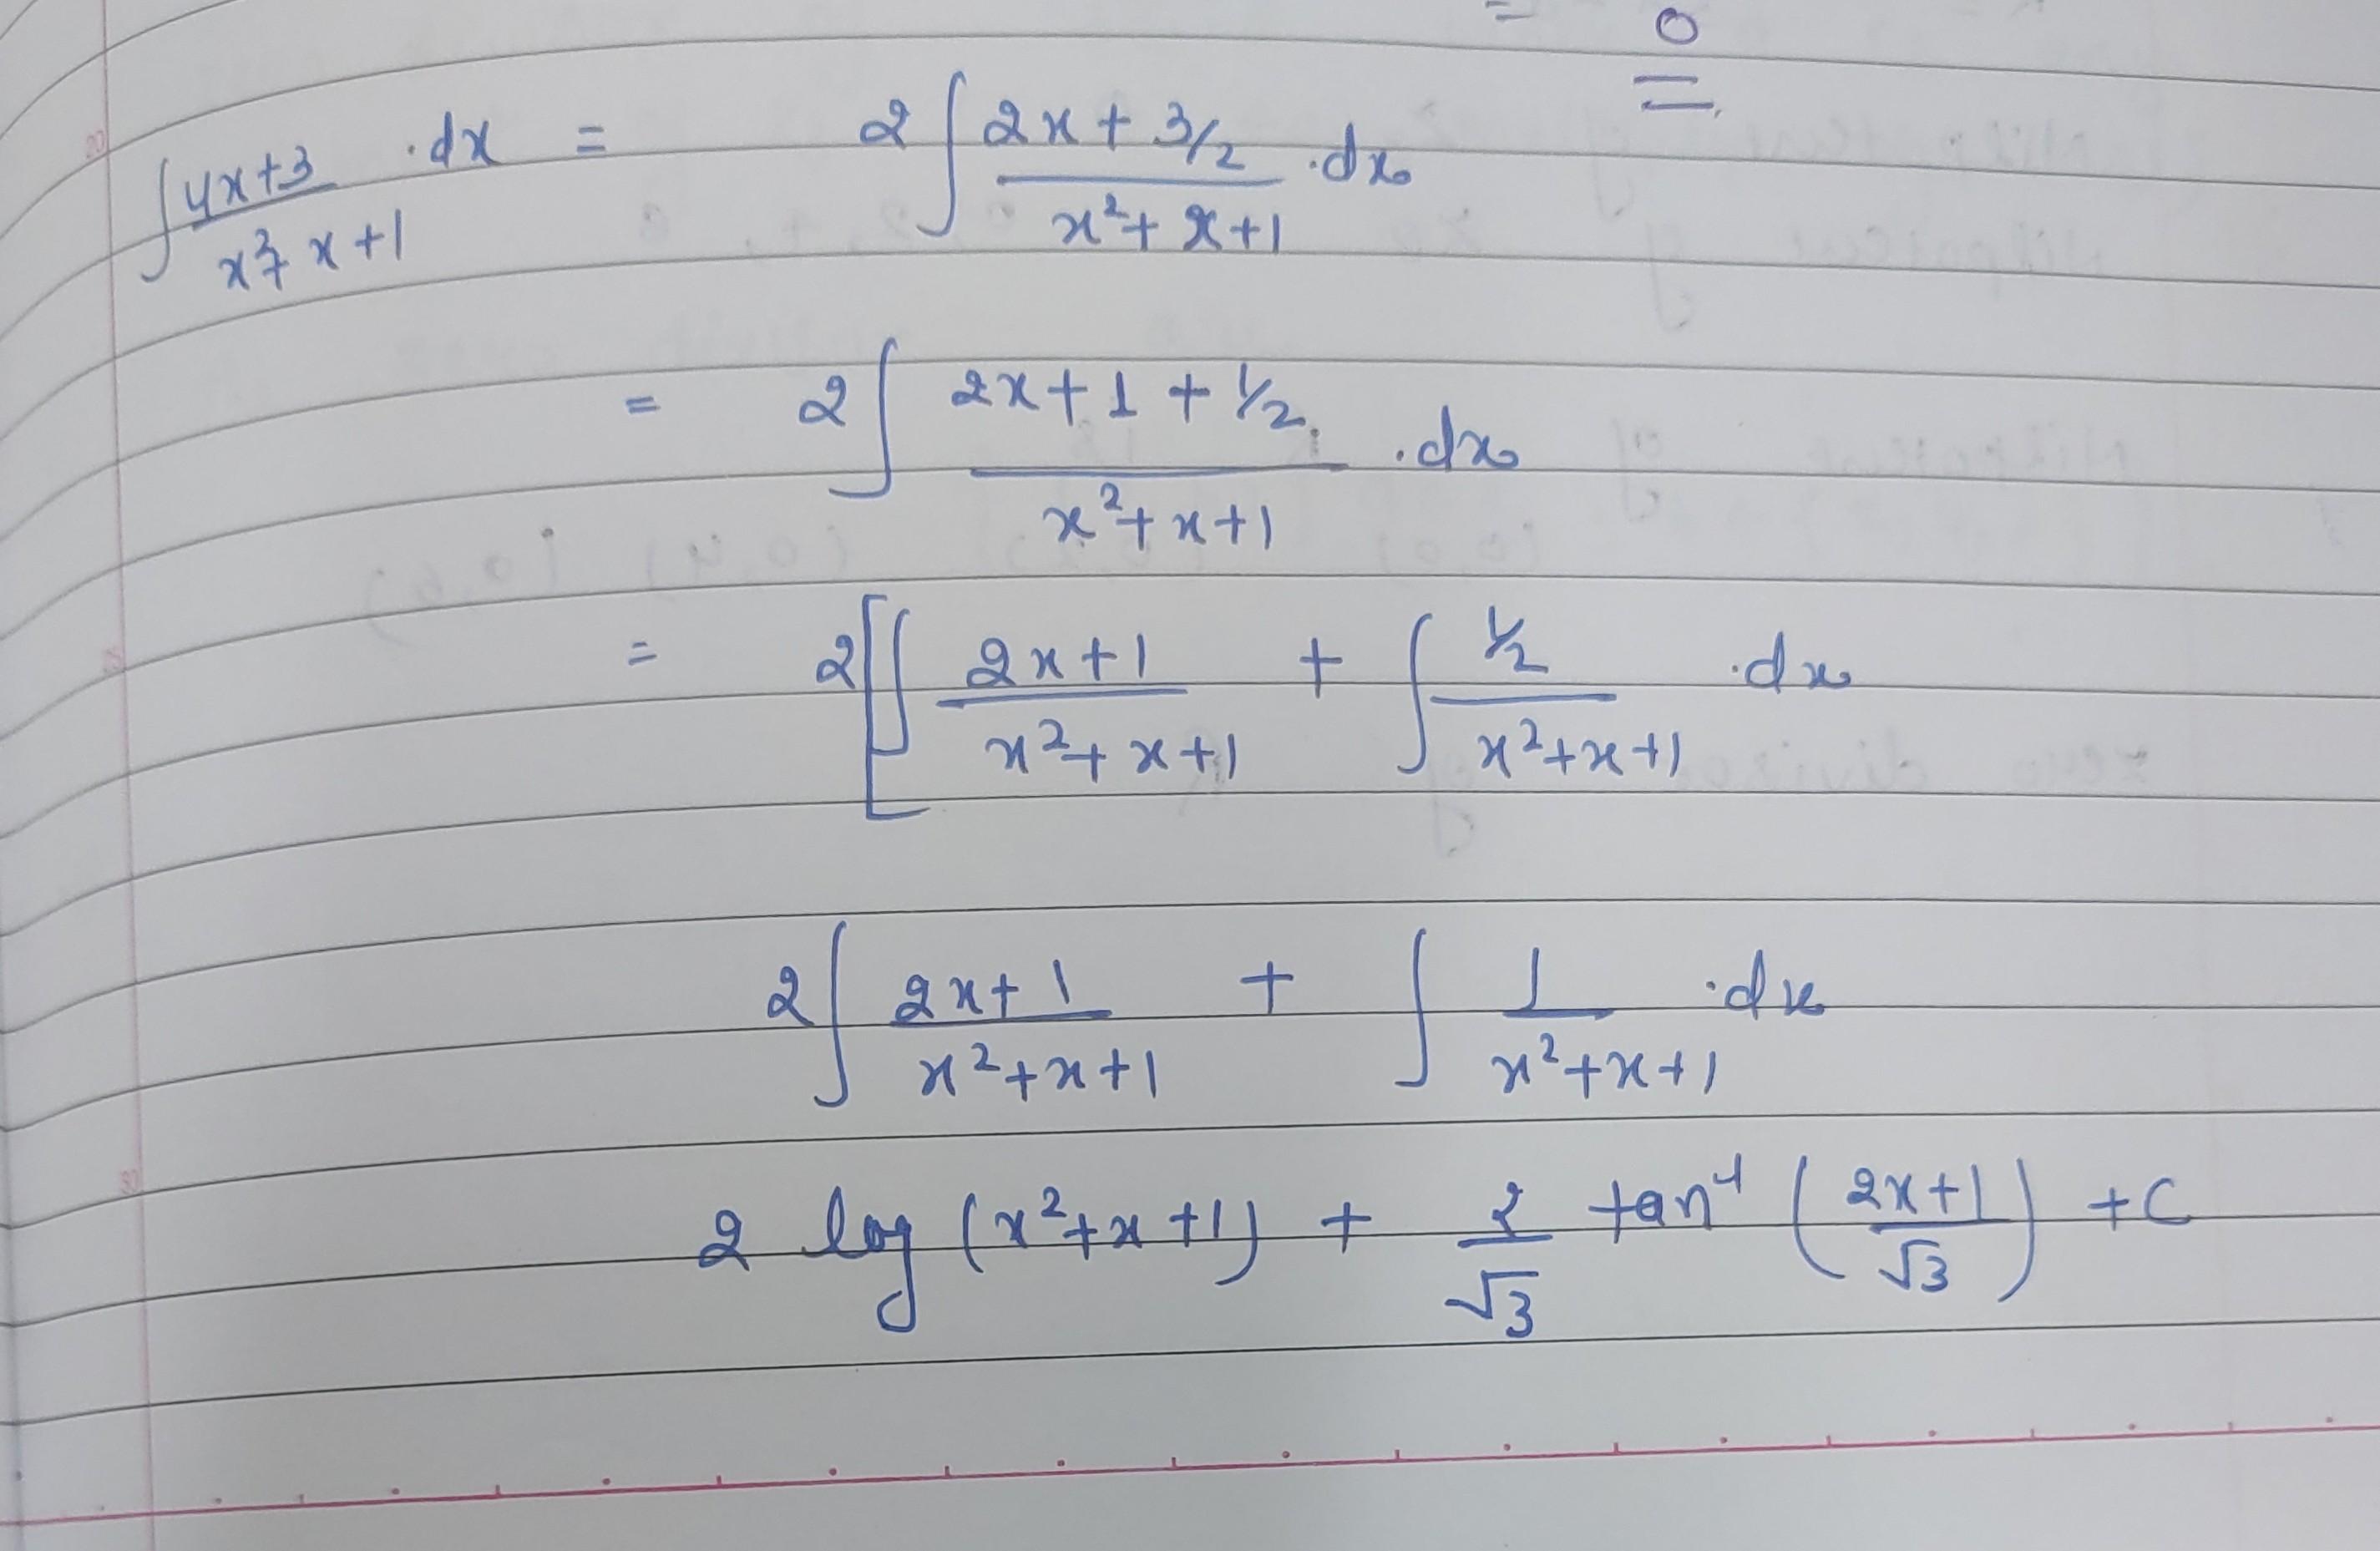 = 0
∫ 4x+3 / x²+x+1 .dx = 2 ∫ 2x+3/2 / x²+x+1 .dx
= 2 ∫ 2x+1+1/2 / x²+x+1 .dx
= 2 [ ∫ 2x+1 / x²+x+1 + ∫ 1/2 / x²+x+1 .dx
2 ∫ 2x+1 / x²+x+1 + ∫ 1 / x²+x+1 .dx
2 log (x²+x+1) + 2/√3 tan⁻¹ (2x+1 / √3) + C